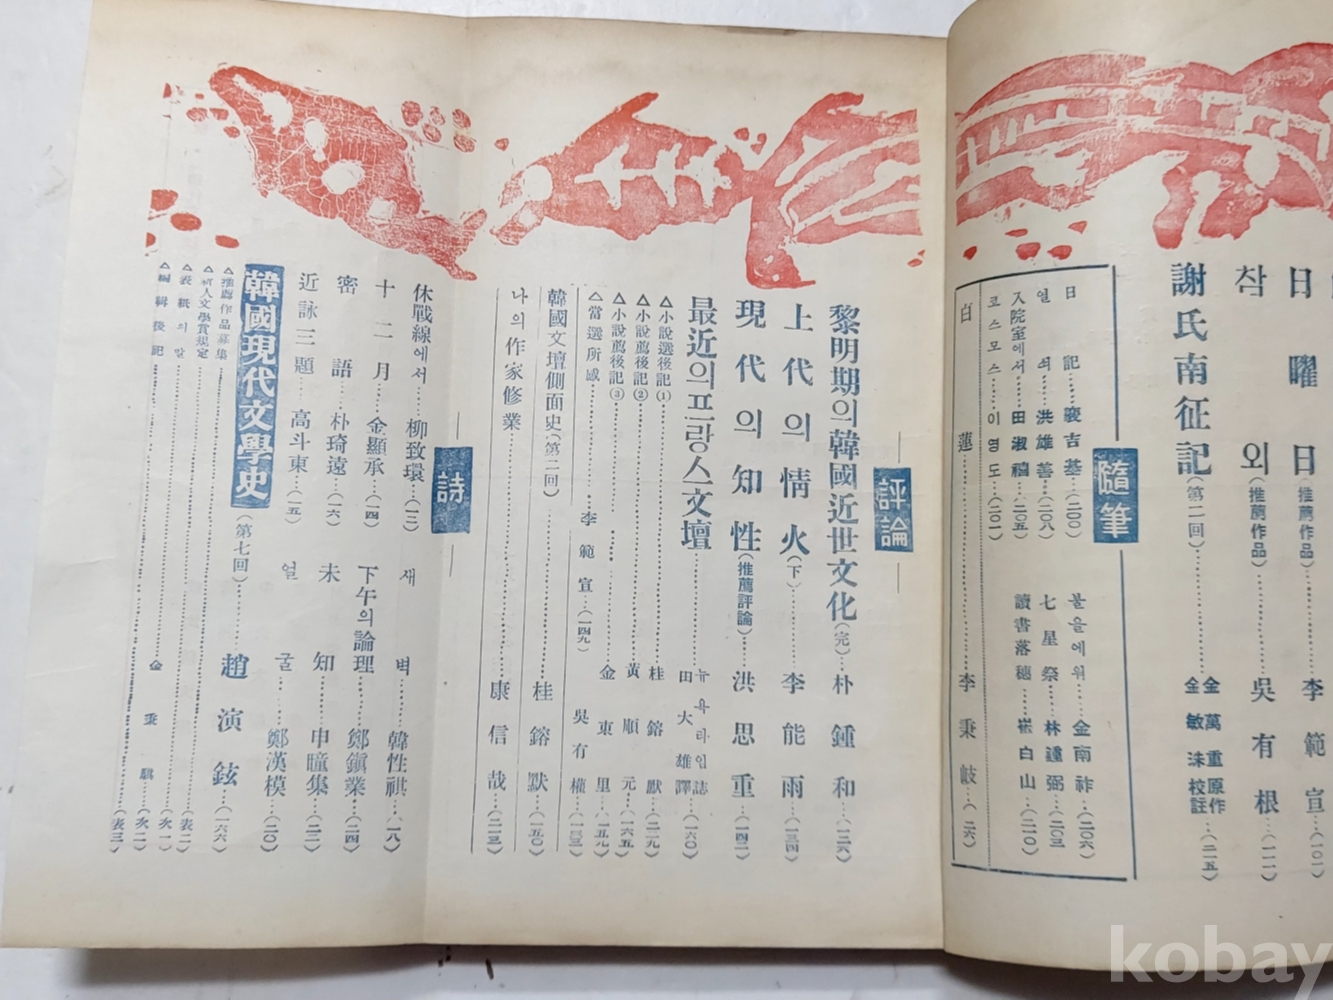 日曜日(推薦作品)……李範宣…(一○一)
착외(推薦作品)……吳有根…(一一一)
謝氏南征記(第二回)……金萬重原作 金敏洙校註…(二一五)
隨筆
日記……駿吉基…(二○○)
열쇠……洪雄善…(二○八)
入院室에서……田淑禧…(二○五)
코스모스……이영도…(二○一)
불을에워……金南祚…(二○六)
七星祭……林鍾弼…(二○三)
讀書落穗……崔白山…(二一○)
白蓮……李秉岐…(二六)
評論
黎明期의韓國近世文化(完)…朴鍾和…(一三六)
上代의情火(下)……李能雨…(一三四)
現代의知性(推薦評論)……洪思重…(一四二)
最近의프랑스文壇……뉴욕타임誌 田大雄譯…(一六○)
△小說選後記(1)……桂鎔默…(二一九)
△小說薦後記(2)……黃順元…(一六五)
△小說薦後記(3)……金東里…(一五九)
△當選所感……李範宣…(一四九) 吳有權…(一三三)
韓國文壇側面史(第二回)……桂鎔默…(一五○)
나의作家修業……康信哉…(二一三)
詩
休戰線에서……柳致環…(一三)
十二月……金顯承…(一四)
密語……朴琦遠…(一六)
近詠三題……高斗東…(一五)
새벽……韓性祺…(一八)
下午의論理……鄭鎭業…(二四)
未知……申瞳集…(二三)
얼굴……鄭漢模…(二○)
韓國現代文學史(第七回)……趙演鉉…(一六六)
△推薦作品募集……(表二)
△新人文學賞規定……(次一)
△表紙의말……金秉騏…(次二)
△編輯後記……(表三)
kobay